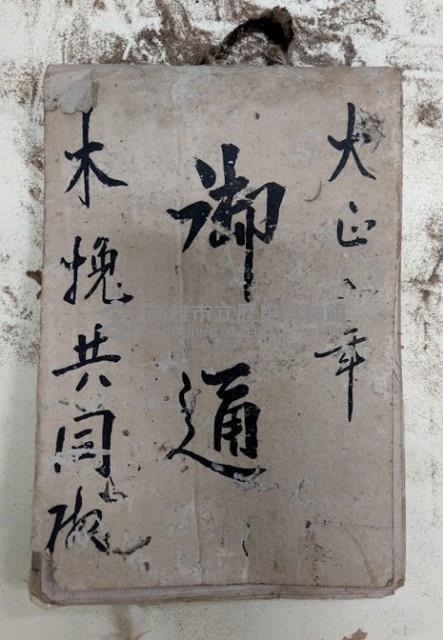 大正八年
御通
木挽共同
高雄市立歷史博物館